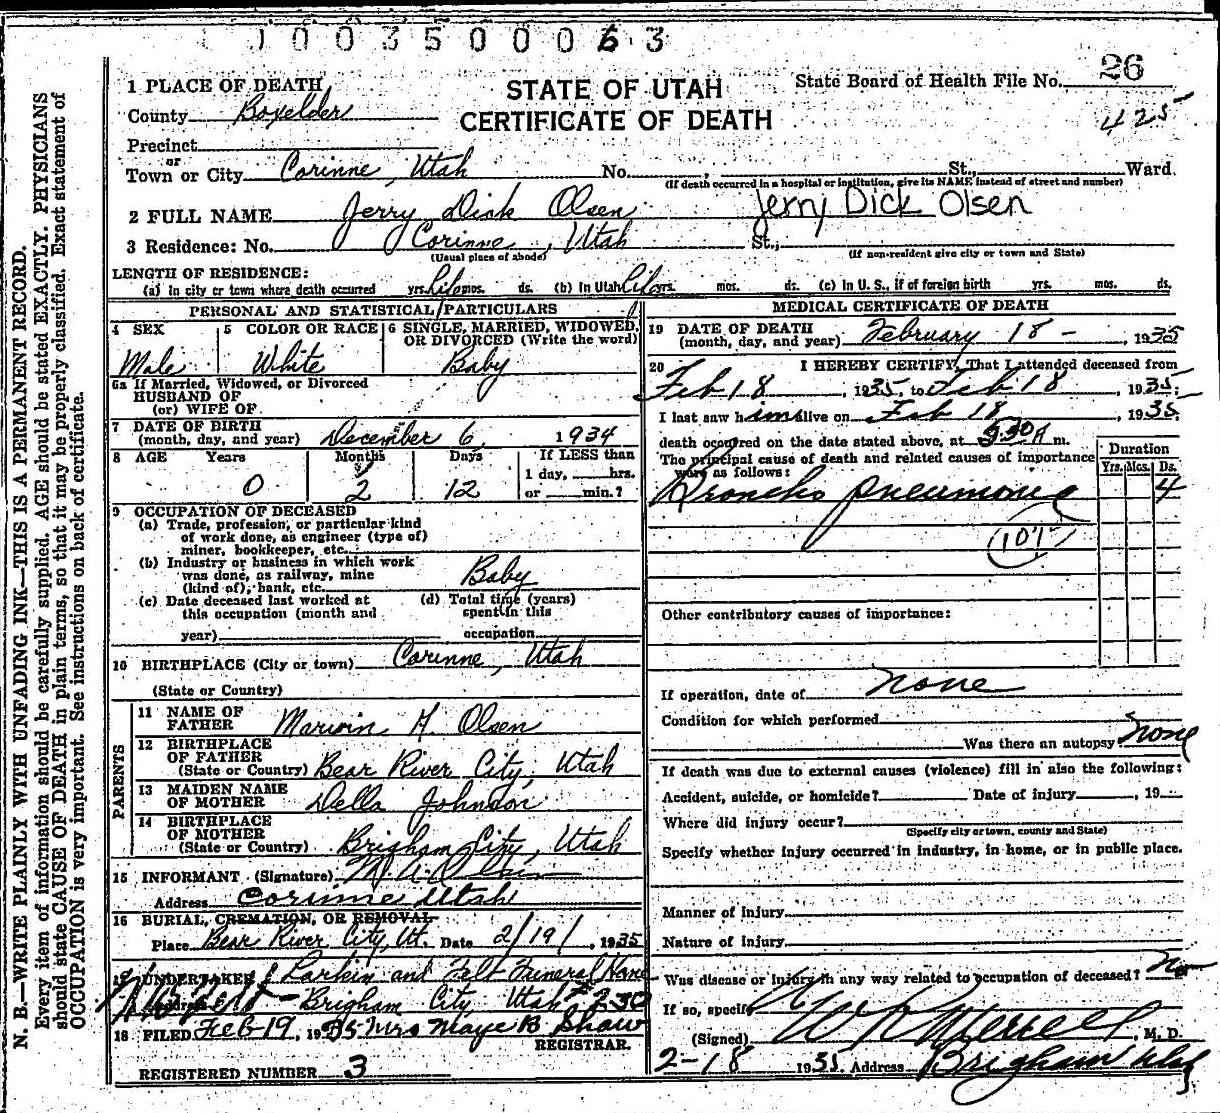 1003500063
1 PLACE OF DEATH
STATE OF UTAH
State Board of Health File No. 26
County Boxelder
CERTIFICATE OF DEATH
425
Precinct
or
Town or City Corinne, Utah No. St., Ward
(If death occurred in a hospital or institution, give its NAME instead of street and number)
2 FULL NAME Jerry Dick Olsen Jerry Dick Olsen
3 Residence: No. Corinne, Utah St.,
(Usual place of abode) (If non-resident give city or town and State)
LENGTH OF RESIDENCE:
(a) In city or town where death occurred yrs. Life mos. ds. (b) In Utah Life yrs. mos. ds. (c) In U. S., if of foreign birth yrs. mos. ds.
PERSONAL AND STATISTICAL PARTICULARS
4 SEX 5 COLOR OR RACE 6 SINGLE, MARRIED, WIDOWED,
OR DIVORCED (Write the word)
Male White Baby
6a If Married, Widowed, or Divorced
HUSBAND OF
(or) WIFE OF
7 DATE OF BIRTH
(month, day, and year) December 6, 1934
8 AGE Years Months Days If LESS than
1 day, hrs.
0 2 12 or min.?
9 OCCUPATION OF DECEASED
(a) Trade, profession, or particular kind
of work done, as engineer (type of)
miner, bookkeeper, etc.
(b) Industry or business in which work
was done, as railway, mine
(kind of), bank, etc. Baby
(c) Date deceased last worked at (d) Total time (years)
this occupation (month and spent in this
year) occupation
10 BIRTHPLACE (City or town) Corinne, Utah
(State or Country)
PARENTS
11 NAME OF
FATHER Marwin A. Olsen
12 BIRTHPLACE
OF FATHER
(State or Country) Bear River City, Utah
13 MAIDEN NAME
OF MOTHER Della Johnson
14 BIRTHPLACE
OF MOTHER
(State or Country) Brigham City, Utah
15 INFORMANT (Signature)
Address Corinne Utah
16 BURIAL, CREMATION, OR REMOVAL
Place Bear River City, Ut. Date 2/19/, 1935
17 UNDERTAKER Larkin and Felt Funeral Home
Brigham City, Utah #230
18 FILED Feb 19, 1935 Mrs Maye B. Shaw
REGISTRAR.
REGISTERED NUMBER 3
MEDICAL CERTIFICATE OF DEATH
19 DATE OF DEATH
(month, day, and year) February 18 - , 1935
20 I HEREBY CERTIFY, That I attended deceased from
Feb 18, 1935, to Feb 18, 1935.
I last saw him alive on Feb 18, 1935,
death occurred on the date stated above, at 9:30 A m.
The principal cause of death and related causes of importance
were as follows:
Duration
Yrs. Mos. Ds.
Broncho pneumonia 4
107
Other contributory causes of importance:
If operation, date of none
Condition for which performed
Was there an autopsy? none
If death was due to external causes (violence) fill in also the following:
Accident, suicide, or homicide? Date of injury , 19
Where did injury occur?
(Specify city or town, county and State)
Specify whether injury occurred in industry, in home, or in public place.
Manner of injury
Nature of injury
Was disease or injury in any way related to occupation of deceased? No
If so, specify
(Signed) W R Merrell, M. D.
2-18 1935. Address Brigham Utah
N. B.—WRITE PLAINLY WITH UNFADING INK—THIS IS A PERMANENT RECORD.
Every item of information should be carefully supplied. AGE should be stated EXACTLY. PHYSICIANS
should state CAUSE OF DEATH in plain terms, so that it may be properly classified. Exact statement of
OCCUPATION is very important. See instructions on back of certificate.